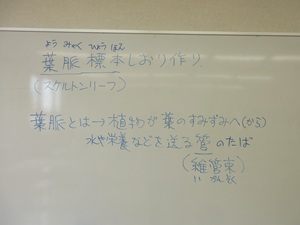 ようみゃくひょうほん
葉脈標本しおり作り.
(スケルトンリーフ)
葉脈とは→植物が葉のすみずみへ(から)
水や栄養などを送る管のたば
(維管束)
いかんそく